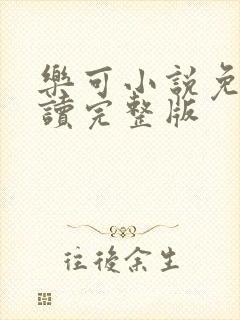 樂可小說免
讀完整版
往後余生